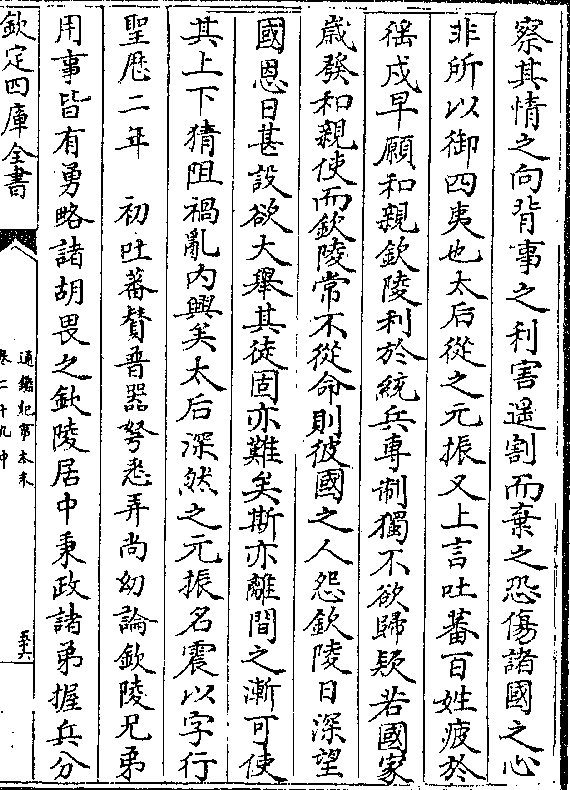 察其情之向背事之利害遥割而棄之恐傷諸國之心
非所以御四夷也太后從之元振又上言吐蕃百姓疲於
徭戍早願和親欽陵利於統兵専制獨不欲歸款若國家
歳發和親使而欽陵常不從命則彼國之人怨欽陵日深望
國恩日甚設欲大舉其徒固亦難矣斯亦離間之漸可使
其上下猜阻禍亂内興矣太后深然之元振名震以字行
聖厯二年　初吐蕃賛普器弩悉弄尚幼論欽陵兄弟
用事皆有勇略諸胡畏之欽陵居中秉政諸弟握兵分
欽定四庫全書
通鑑紀事本末
卷二十九中